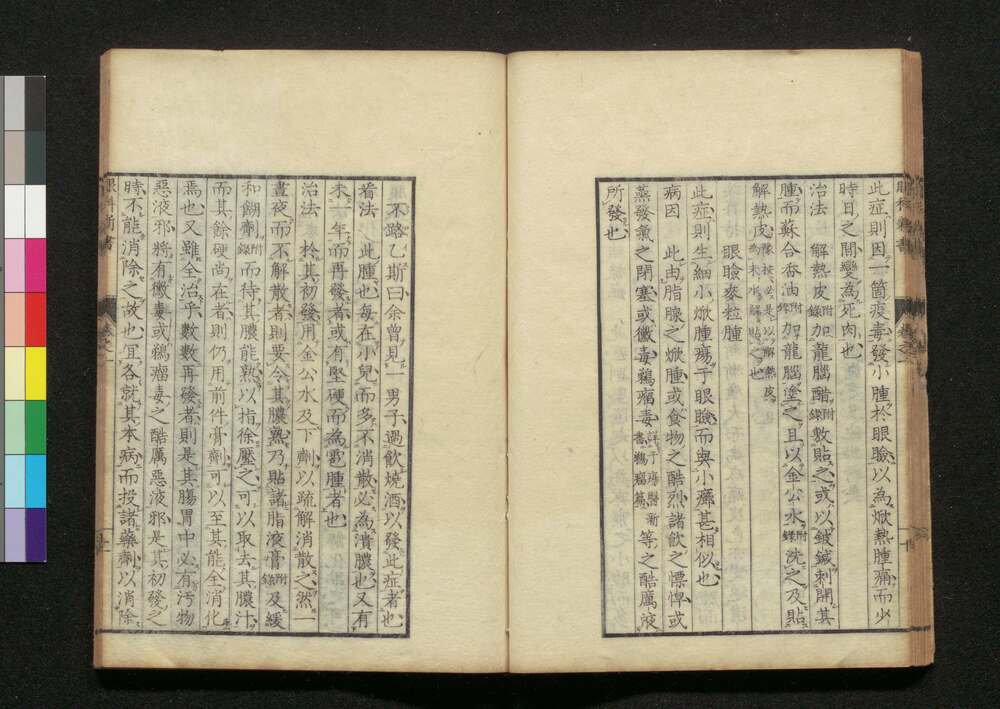 此症則因一箇疫毒發小腫於眼瞼以為焮熱腫痛而少
時日之間變為死肉也
治法　解熱皮附錄加龍腦醋附錄敷貼之或以鈹鍼刺開其
腫而蘇合杏油附錄加龍腦塗之且以金公水附錄洗之及貼
解熱皮
眼瞼麥粒腫
此症則生細小焮腫瘍于眼瞼而與小癤甚相似也
病因　此由脂腺之焮腫或食物之酷烈諸飲之慓悍或
蒸發氣之閉塞或黴毒鵝瘤毒等之酷厲液
所發也
不路乙斯曰余曾見一男子過飲燒酒以發此症者也
看法　此腫也每在小兒而多不消散必為潰膿也又有
未一年而再發者或有堅硬而為雹腫者也
治法　於其初發用金公水及下劑以疏解消散之然一
晝夜而不解散者則要令其膿熟乃貼諸脂液膏附錄及緩
和餬劑附錄而待其膿能熟以指徐壓之可以取去其膿汁
而其餘硬尚在者則仍用前件膏劑可以至其能全消化
焉也又雖全治乎數數再發者則是其腸胃中必有污物
惡液邪將有黴毒或鵝瘤毒之酷厲惡液邪是其初發之
時不能消除之故也宜各就其本病而投諸藥劑以消除
眼科新書
卷之一
十一
十